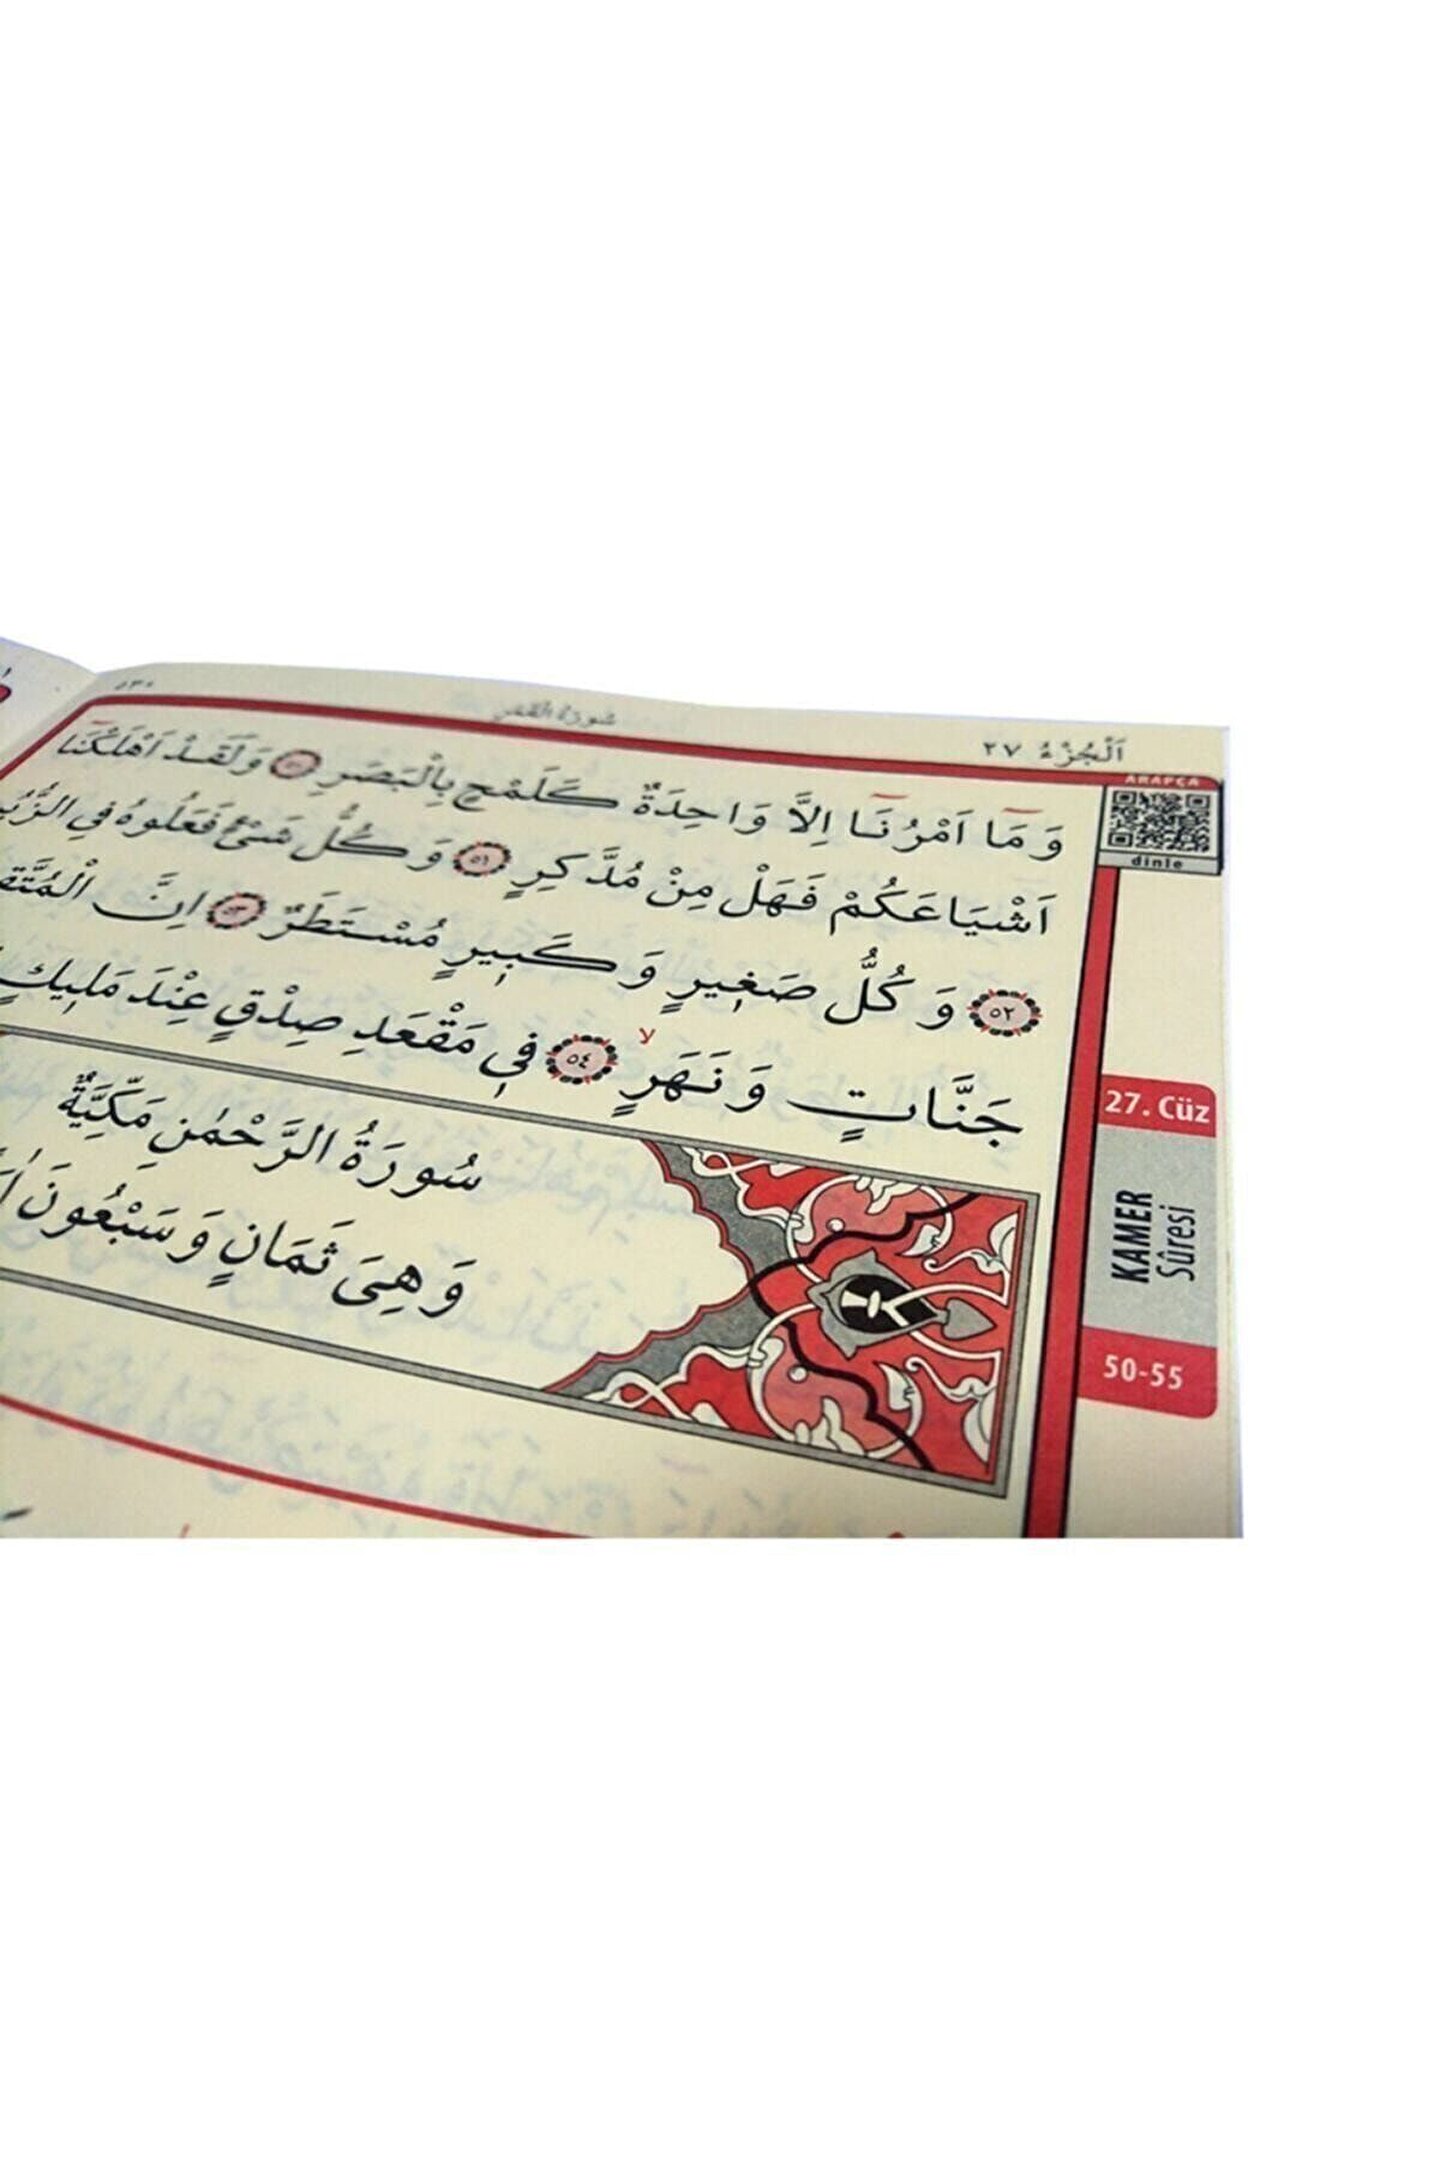 ٥٣٠ سُورَةُ الْقَمَرِ اَلْجُزْءُ ٢٧
ARAPÇA
dinle
وَمَٓا اَمْرُنَٓا اِلَّا وَاحِدَةٌ كَلَمْحٍ بِالْبَصَرِ ٥٠ وَلَقَدْ اَهْلَكْنَٓا
اَشْيَاعَكُمْ فَهَلْ مِنْ مُدَّكِرٍ ٥١ وَكُلُّ شَيْءٍ فَعَلُوهُ فِي
٥٢ وَكُلُّ صَغِيرٍ وَكَبِيرٍ مُسْتَطَرٌ ٥٣ اِنَّ
جَنَّاتٍ وَنَهَرٍ لا ٥٤ فِي مَقْعَدِ صِدْقٍ عِنْدَ مَلِيكٍ
سُورَةُ الرَّحْمٰنِ مَكِّيَّةٌ
وَهِيَ ثَمَانٍ وَسَبْعُونَ
27. Cüz
KAMER
Sûresi
50-55